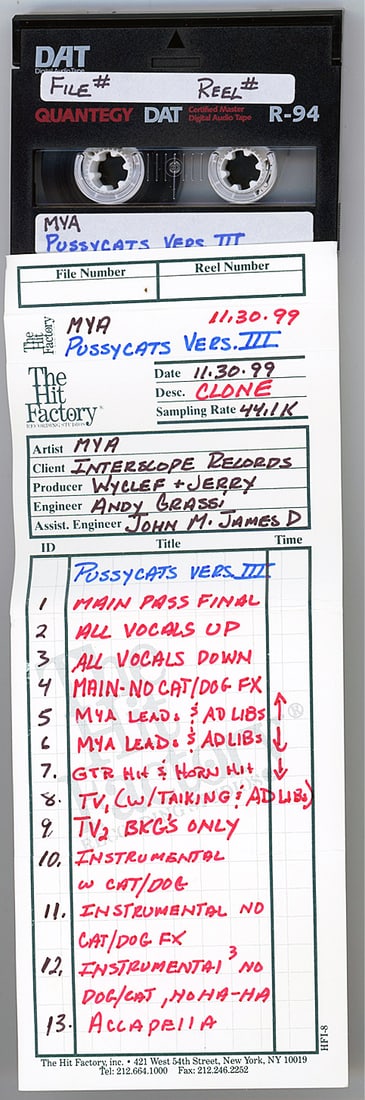 DAT
Digital Audio Tape
FILE# REEL#
QUANTEGY DAT Certified Master Digital Audio Tape R-94
MYA
PUSSYCATS VERS III
File Number Reel Number
The Hit Factory
MYA 11.30.99
PUSSYCATS VERS. III
The Hit Factory®
RECORDING STUDIOS
Date 11.30.99
Desc. CLONE
Sampling Rate 44.1K
Artist MYA
Client INTERSCOPE RECORDS
Producer WYCLEF + JERRY
Engineer ANDY GRASSI
Assist. Engineer JOHN M. JAMES D
ID Title Time
PUSSYCATS VERS. III
1 MAIN PASS FINAL
2 ALL VOCALS UP
3 ALL VOCALS DOWN
4 MAIN-NO CAT/DOG FX
5 MYA LEAD. & AD LIBS ↑
6 MYA LEAD. & ADLIBS ↓
7. GTR HIT & HORN HIT ↓
8. TV, (W/TALKING & AD LIBS)
9. TV2 BKG'S ONLY
10. INSTRUMENTAL
W CAT/DOG
11. INSTRUMENTAL NO
CAT/DOG FX
12. INSTRUMENTAL 3 NO
DOG/CAT, NO HA-HA
13. ACCAPELLA
The Hit Factory, inc. • 421 West 54th Street, New York, NY 10019
Tel: 212.664.1000 Fax: 212.246.2252
HFI-8